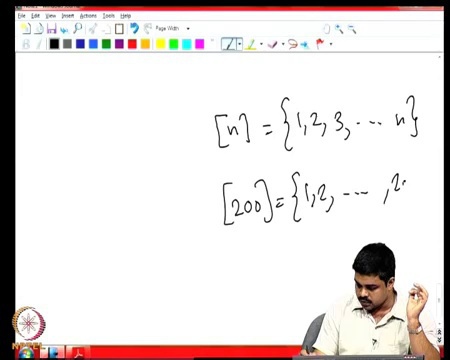 File Edit View Insert Actions Tools Help
Page Width
B
[n] = {1, 2, 3, ... n}
[200] = {1, 2, ... , 2